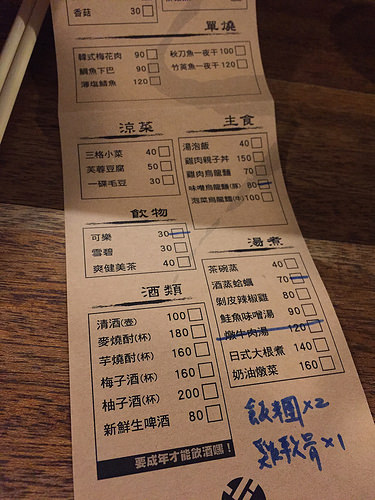 香菇 30
單燒
韓式梅花肉 90
鯛魚下巴 90
薄塩鯖魚 120
秋刀魚一夜干 100
竹莢魚一夜干 120
涼菜
三格小菜 40
芙蓉豆腐 50
一碟毛豆 30
主食
湯泡飯 40
雞肉親子丼 150
雞肉烏龍麵 70
味噌烏龍麵(豚) 80
泡菜烏龍麵(牛) 100
飲物
可樂 30
雪碧 30
爽健美茶 40
湯煮
茶碗蒸 40
酒蒸蛤蠣 70
剝皮辣椒雞 80
鮭魚味噌湯 90
燉牛肉湯 120
日式大根煮 140
奶油燉菜 160
酒類
清酒(壺) 100
麥燒酎(杯) 180
芋燒酎(杯) 160
梅子酒(杯) 160
柚子酒(杯) 200
新鮮生啤酒 80
要成年才能飲酒嘿！
飯糰x2
雞軟骨x1